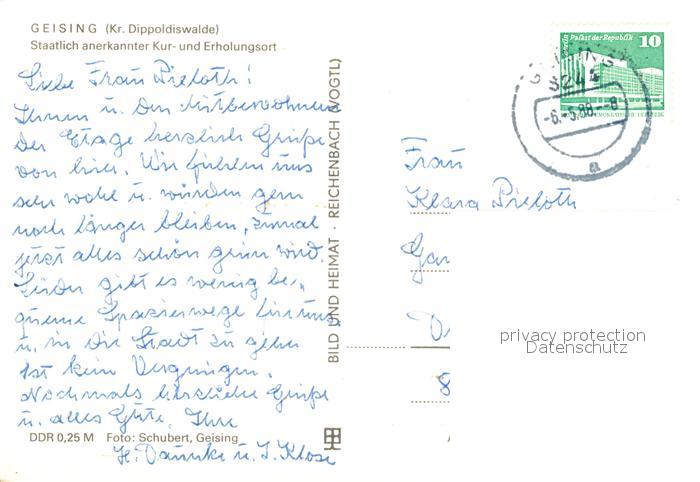 GEISING (Kr. Dippoldiswalde)
Staatlich anerkannter Kur- und Erholungsort
Liebe Frau Pieloth!
Ihnen u. den Mitbewohnern
der Etage herzlich Grüße
von hier. Wir fühlen uns
sehr wohl u. würden gern
noch länger bleiben, zumal
jetzt alles schön grün wird.
Leider gibt es wenig be-
queme Spazierwege
u. in die Stadt zu gehen
ist kein Vergnügen.
Nochmals herzliche Grüße
u. alles Gute, Ihre
H. u. I. Klose
DDR 0,25 M Foto: Schubert, Geising
BILD UND HEIMAT · REICHENBACH (VOGTL)
Palast der Republik 10
GEISING
8244
-6.-5.88.--8
a
Frau
Klara Pieloth
Gar
8
privacy protection
Datenschutz